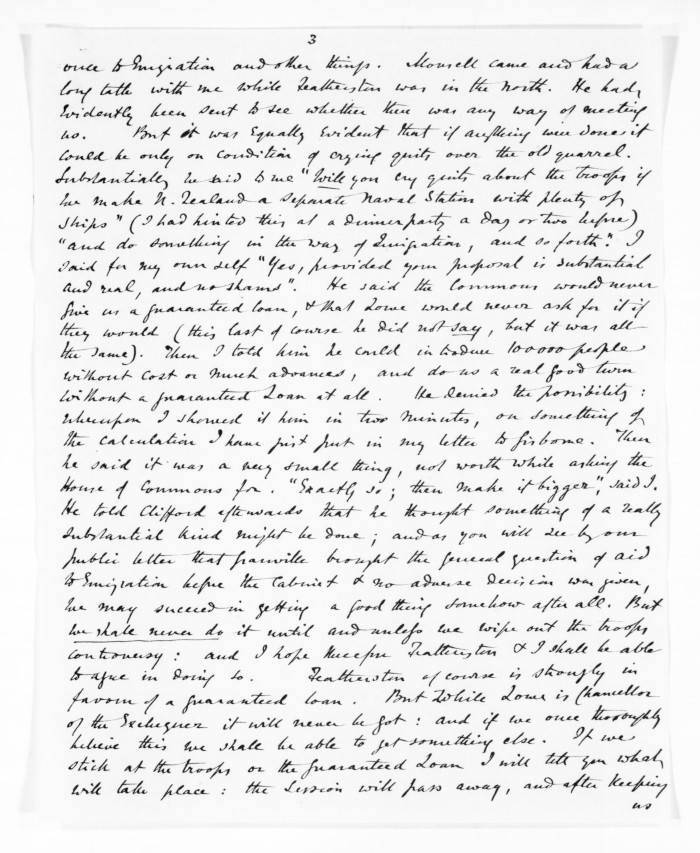 3
once to Emigration and other things. Monsell came and had a
long talk with me while Featherston was in the North. He had
Evidently been sent to see whether there was any way of meeting
us. But it was Equally Evident that if anything were done it
could be only on condition of crying quits over the old quarrel.
Substantially he said to me "Will you cry quits about the troops if
we make N. Zealand a separate Naval Station with plenty of
ships" (I had hinted this at a dinner party a day or two before)
"and do something in the way of Emigration, and so forth". I
said for my own self "Yes, provided your proposal is substantial
and real, and no sham". He said the Commons would never
give us a guaranteed loan, & that Lowe would never ask for it if
they would (this last of course he did not say, but it was all
the same). Then I told him he could introduce 100000 people
without cost or much advances, and do us a real good turn
without a guaranteed Loan at all. He denied the possibility:
whereupon I showed it him in two minutes, on something of
the calculation I have just put in my letter to Gisborne. Then
he said it was a very small thing, not worth while asking the
House of Commons for. "Exactly so; then make it bigger", said I.
He told Clifford afterwards that he thought something of a really
substantial kind might be done; and as you will see by our
public letter that Granville brought the general question of aid
to Emigration before the Cabinet & no adverse decision was given,
we may succeed in getting a good thing somehow after all. But
we shall never do it until and unless we wipe out the troops
controversy: and I hope Featherston & I shall be able
to agree in doing so. Featherston of course is strongly in
favour of a guaranteed loan. But while Lowe is Chancellor
of the Exchequer it will never be got: and if we once thoroughly
believe this we shall be able to get something else. If we
stick at the troops or the guaranteed Loan I will tell you what
will take place: the Session will pass away, and after keeping
us